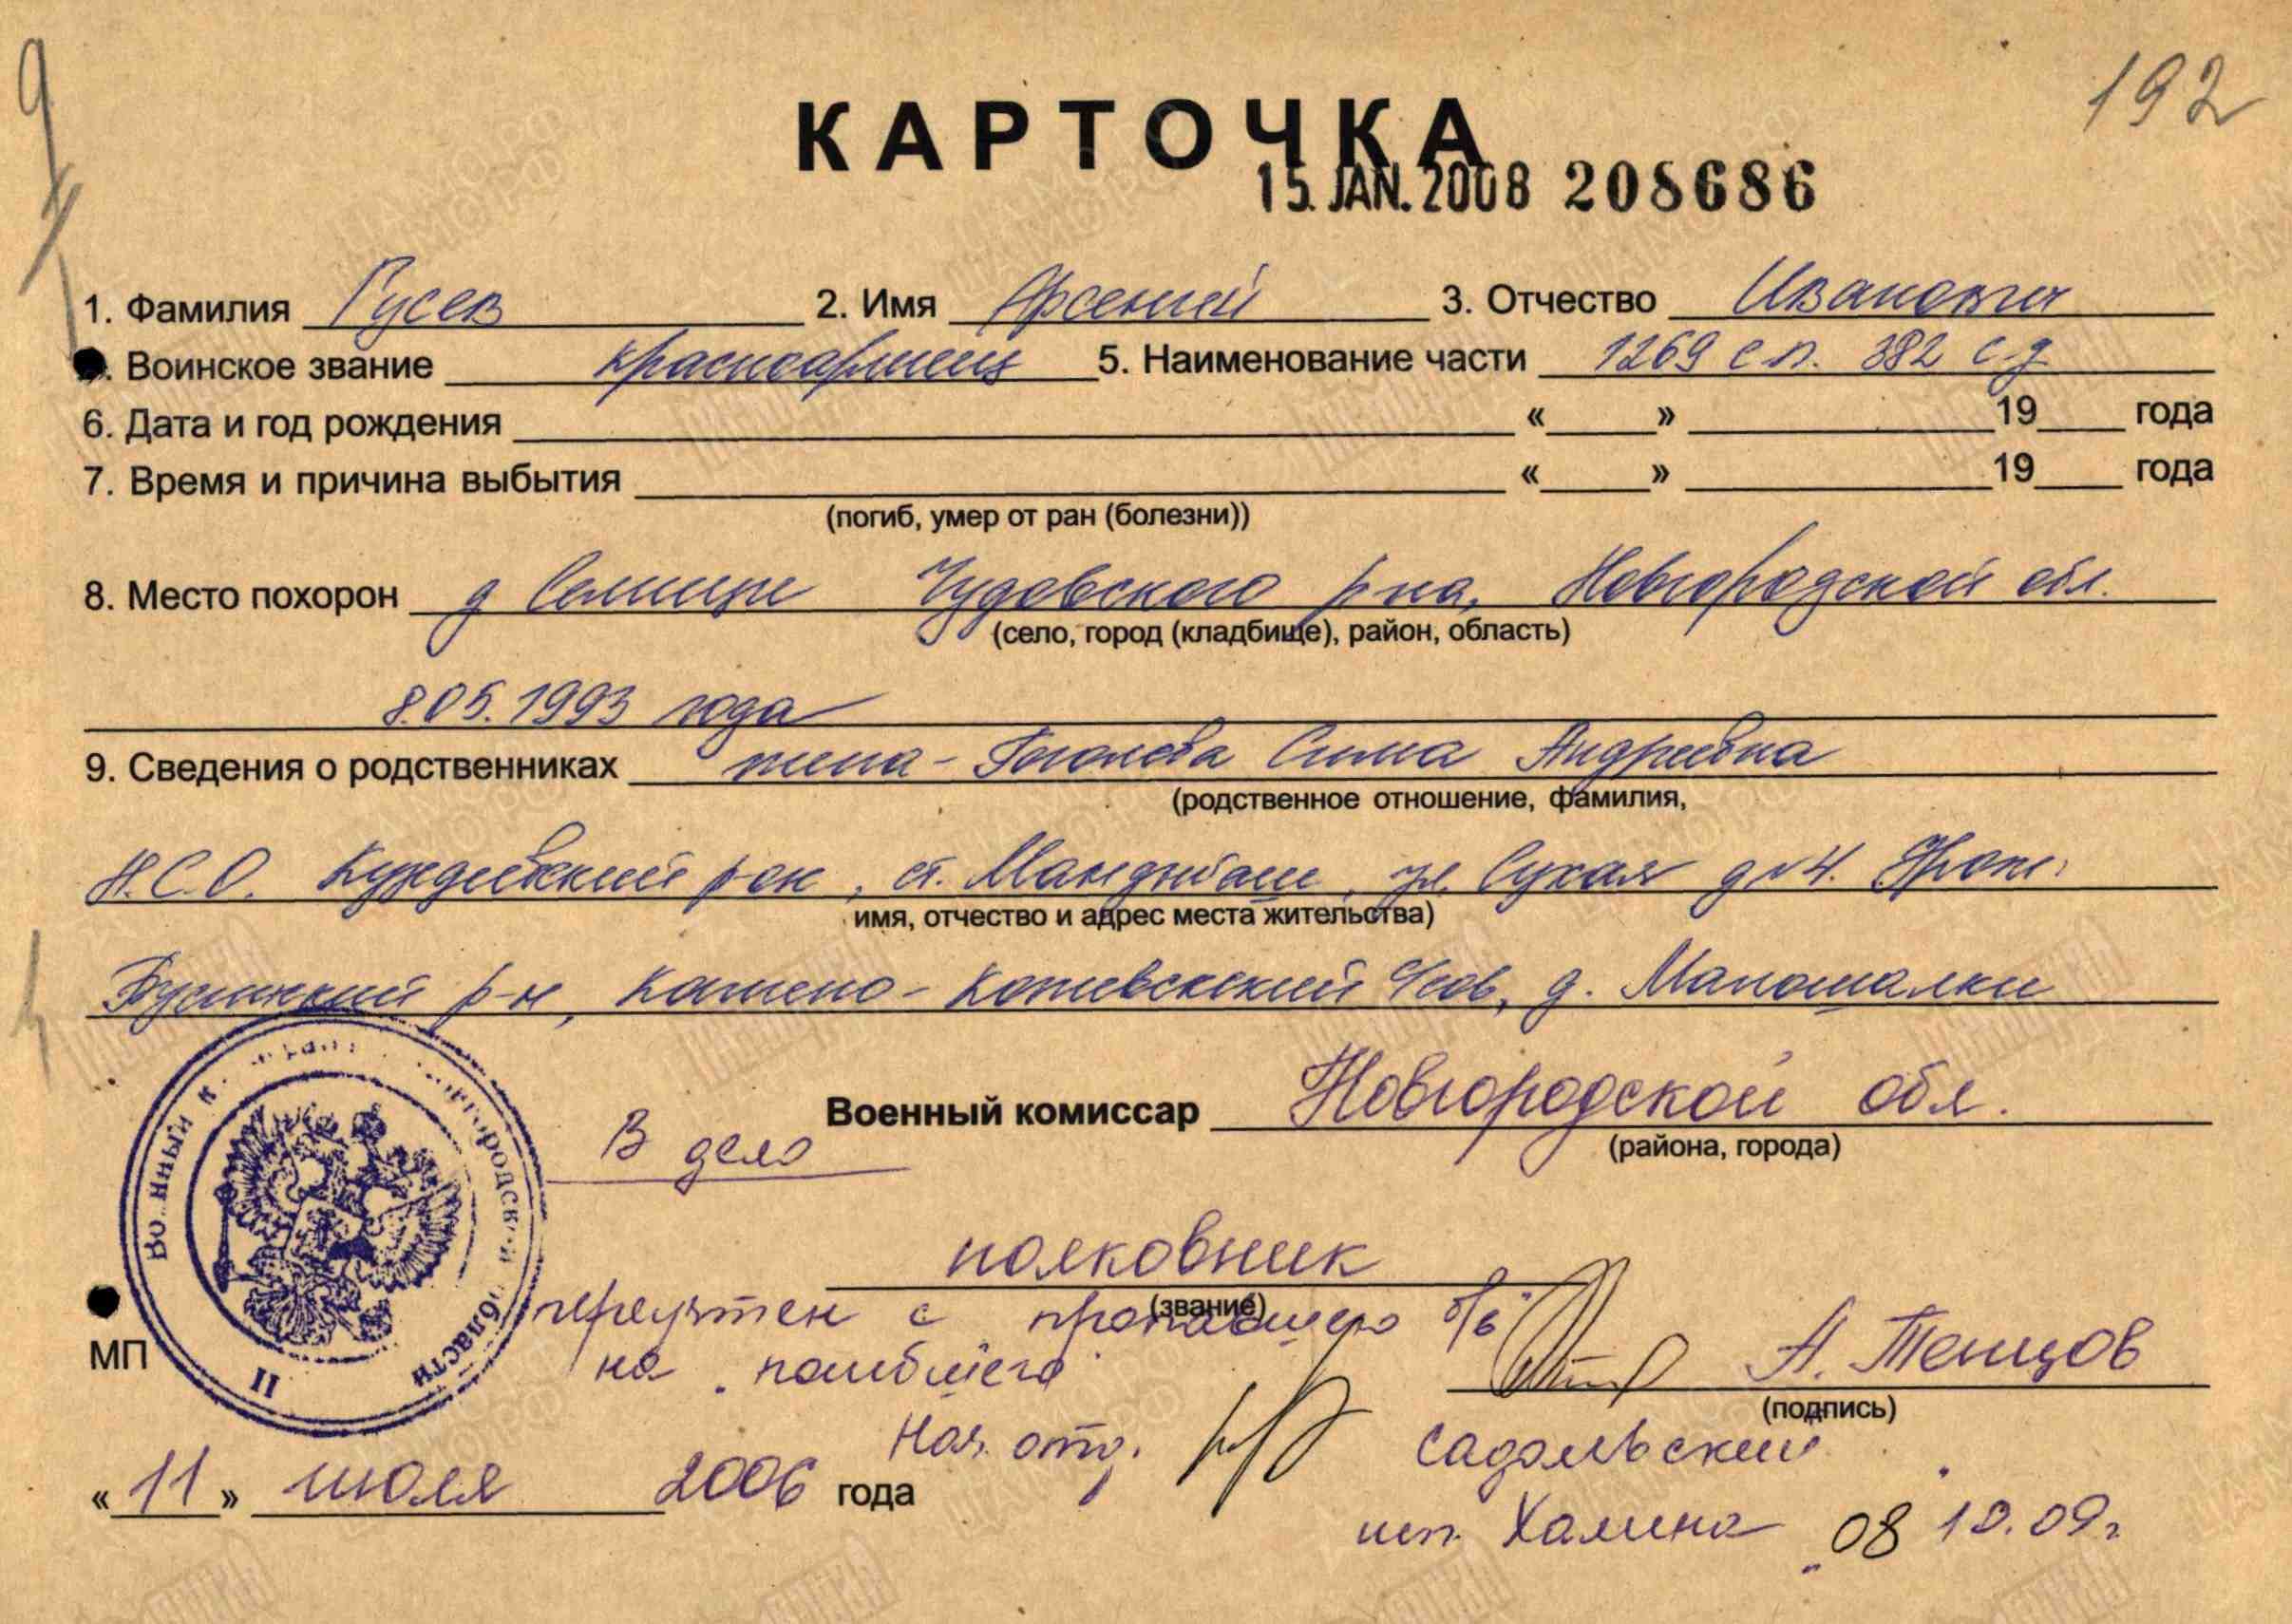 192
КАРТОЧКА
15. JAN. 2008 208686
1. Фамилия Гусев 2. Имя Арсений 3. Отчество Иванович
Воинское звание красноармеец 5. Наименование части 1269 с.п. 382 с.д
6. Дата и год рождения « » 19 года
7. Время и причина выбытия « » 19 года
(погиб, умер от ран (болезни))
8. Место похорон д Селищи Чудовского р-на, Новгородской обл.
(село, город (кладбище), район, область)
8.05.1993 года
9. Сведения о родственниках жена - Гоголева Сима Андреевна
(родственное отношение, фамилия,
Н.С.О. р-он, ст. Мандыбаш, ул. Сухая д №4.
имя, отчество и адрес места жительства)
р-н, Камено- д.
Военный комиссар Новгородской обл.
(района, города)
В дело
полковник
(звание)
переучтен с пропавшего б/в
на погибшего
МП
А. Тенцов
(подпись)
Нач. отд. Садольский
«11» июля 2006 года
исп. Халина 08 10.09г